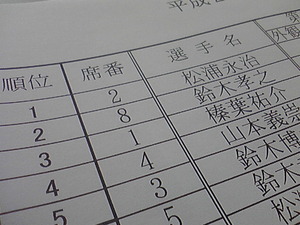 平成
順位 席番 選手名 外観
1 2 松浦永治
2 8 鈴木孝之
3 1 榛葉祐介
4 4 山本義崇
5 3 鈴木博
5 鈴木
松